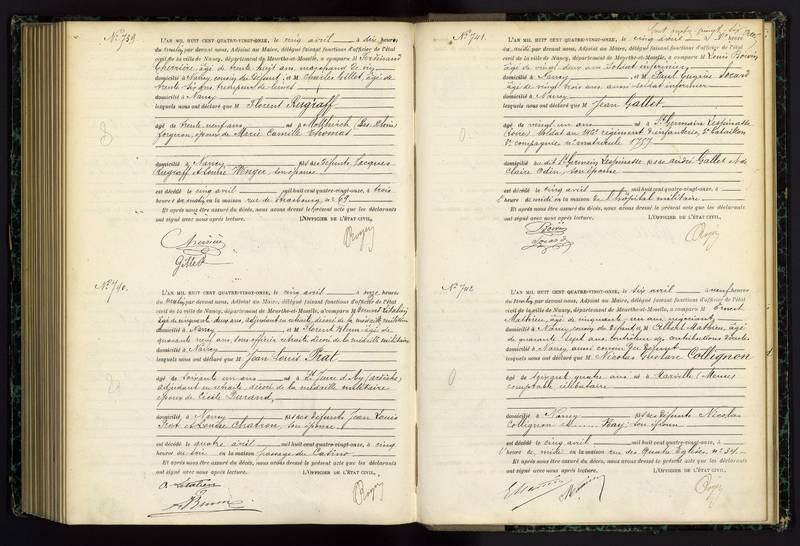 N° 739
L'AN MIL HUIT CENT QUATRE-VINGT-ONZE, le cinq avril à dix heures
du matin, par devant nous, Adjoint au Maire, délégué faisant fonctions d'officier de l'état
civil de la ville de Nancy, département de Meurthe-et-Moselle, a comparu M Ferdinand
âgé de trente huit ans, marchand de vin
domicilié à Nancy, cousin du défunt, et M Charles Gillet, âgé de
trente six ans
domicilié à Nancy
lesquels nous ont déclaré que M Florent Rugraff
âgé de trente neuf ans né à
forgeron, époux de Marie Camille Thomas
domicilié à Nancy fils des défunts Jacques
Rugraff et Louise Wenger, son épouse
est décédé le cinq avril mil huit cent quatre-vingt-onze, à trois
heures du matin, en la maison rue de Strasbourg, n° 69
Et après nous être assuré du décès, nous avons dressé le présent acte que les déclarants
ont signé avec nous après lecture. L'OFFICIER DE L'ÉTAT CIVIL,
Gillet
N° 740.
L'AN MIL HUIT CENT QUATRE-VINGT-ONZE, le cinq avril à onze heures
du matin, par devant nous, Adjoint au Maire, délégué faisant fonctions d'officier de l'état
civil de la ville de Nancy, département de Meurthe-et-Moselle, a comparu M
âgé de cinquante deux ans, adjudant en retraite, décoré de la médaille militaire
domicilié à Nancy, et M Florent âgé de
quarante neuf ans, sous-officier retraité décoré de la médaille militaire
domicilié à Nancy
lesquels nous ont déclaré que M Jean Louis Prat
âgé de soixante un ans né à St Jeure d'Ay (Ardèche)
adjudant en retraite, décoré de la médaille militaire
époux de Cécile Durand,
domicilié à Nancy fils des défunts Jean Louis
Prat et Louise Chatron, son épouse
est décédé le quatre avril mil huit cent quatre-vingt-onze, à cinq
heures du soir en la maison passage du Casino
Et après nous être assuré du décès, nous avons dressé le présent acte que les déclarants
ont signé avec nous après lecture. L'OFFICIER DE L'ÉTAT CIVIL,
N° 741.
L'AN MIL HUIT CENT QUATRE-VINGT-ONZE, le cinq avril à
du matin, par devant nous, Adjoint au Maire, délégué faisant fonctions d'officier de l'état
civil de la ville de Nancy, département de Meurthe-et-Moselle, a comparu M Louis Boivin
âgé de vingt deux ans soldat infirmier
domicilié à Nancy, et M Paul Eugène Socard
âgé de vingt trois ans, aussi soldat infirmier
domicilié à Nancy
lesquels nous ont déclaré que M Jean Gallet
âgé de vingt un ans né à St Germain Lespinasse
(Loire) soldat au régiment d'infanterie, bataillon
compagnie n° matricule 1757
domicilié au dit St Germain Lespinasse fils de André Gallet et de
Claire Odin, son épouse
est décédé le cinq avril mil huit cent quatre-vingt-onze, à
heure de midi en la maison de l'hôpital militaire
Et après nous être assuré du décès, nous avons dressé le présent acte que les déclarants
ont signé avec nous après lecture. L'OFFICIER DE L'ÉTAT CIVIL,
Boivin
Socard
N° 742
L'AN MIL HUIT CENT QUATRE-VINGT-ONZE, le six avril à neuf heures
du matin, par devant nous, Adjoint au Maire, délégué faisant fonctions d'officier de l'état
civil de la ville de Nancy, département de Meurthe-et-Moselle, a comparu M Ernest
Mathieu, âgé de cinquante un ans, négociant
domicilié à Nancy, cousin du défunt, et M Mathieu, âgé
de quarante sept ans, contrôleur des contributions directes
domicilié à Nancy, aussi cousin du défunt
lesquels nous ont déclaré que M Nicolas Gustave Collignon
âgé de soixante quatre ans né à Marville (Meuse)
comptable célibataire
domicilié à Nancy fils des défunts Nicolas
Collignon et Bay, son épouse
est décédé le cinq avril mil huit cent quatre-vingt-onze, à
heure de midi en la maison rue des Quatre Eglises, n° 34
Et après nous être assuré du décès, nous avons dressé le présent acte que les déclarants
ont signé avec nous après lecture. L'OFFICIER DE L'ÉTAT CIVIL,